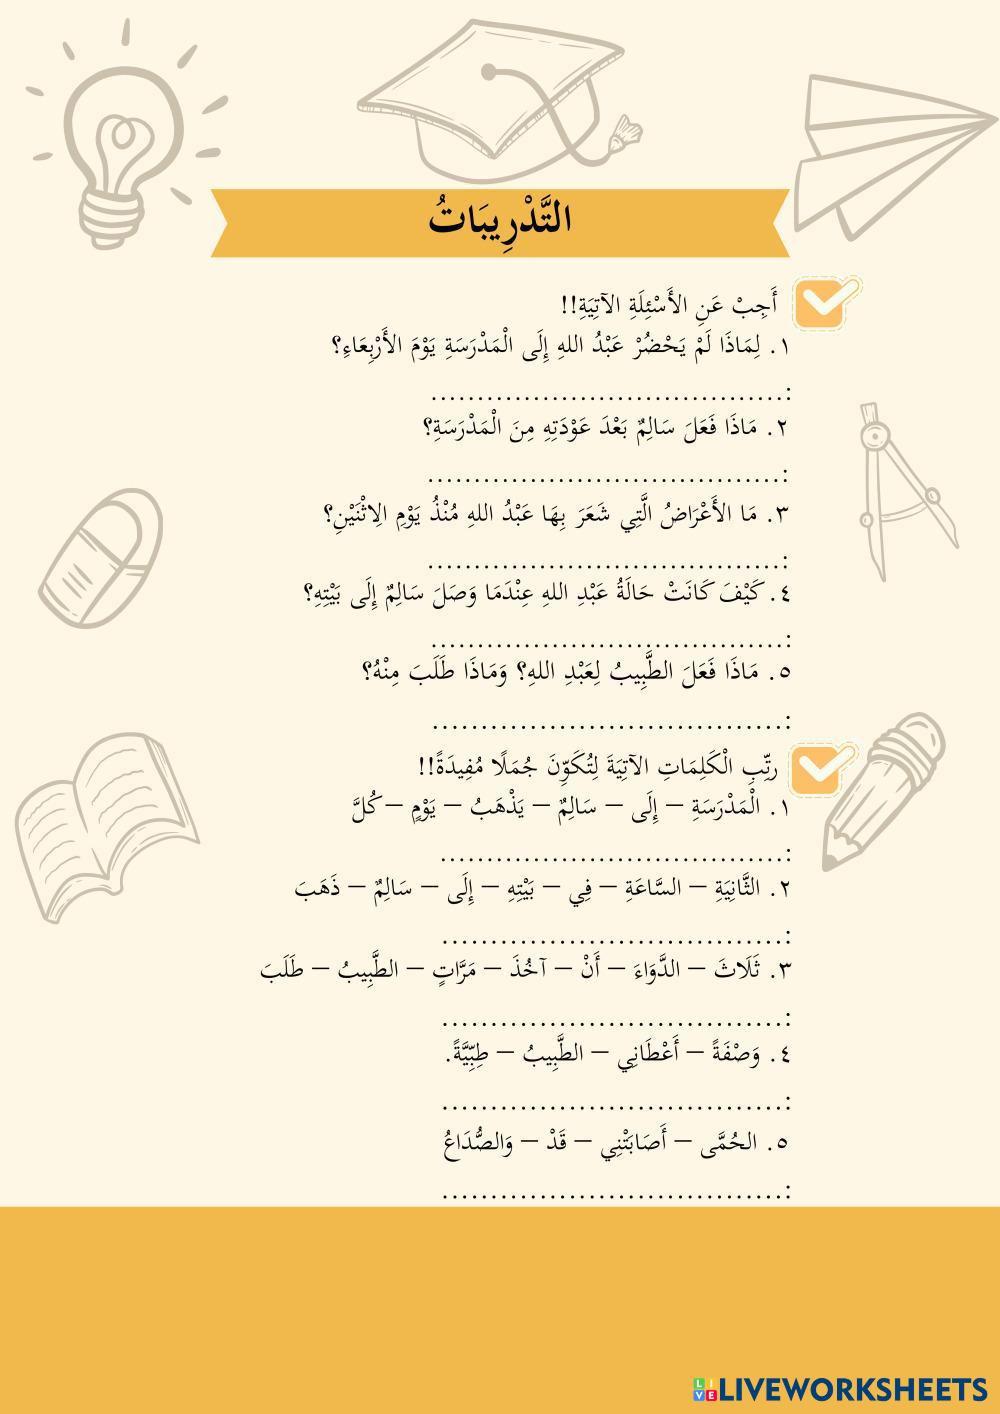 التَّدْرِيبَاتُ
أَجِبْ عَنِ الأَسْئِلَةِ الآتِيَةِ!!
١. لِمَاذَا لَمْ يَحْضُرْ عَبْدُ اللهِ إِلَى الْمَدْرَسَةِ يَوْمَ الأَرْبِعَاءِ؟
:....................................
٢. مَاذَا فَعَلَ سَالِمٌ بَعْدَ عَوْدَتِهِ مِنَ الْمَدْرَسَةِ؟
:....................................
٣. مَا الأَعْرَاضُ الَّتِي شَعَرَ بِهَا عَبْدُ اللهِ مُنْذُ يَوْمِ الِاثْنَيْنِ؟
:....................................
٤. كَيْفَ كَانَتْ حَالَةُ عَبْدِ اللهِ عِنْدَمَا وَصَلَ سَالِمٌ إِلَى بَيْتِهِ؟
:....................................
٥. مَاذَا فَعَلَ الطَّبِيبُ لِعَبْدِ اللهِ؟ وَمَاذَا طَلَبَ مِنْهُ؟
:....................................
رَتِّبِ الْكَلِمَاتِ الآتِيَةَ لِتُكَوِّنَ جُمَلًا مُفِيدَةً!!
١. الْمَدْرَسَةِ – إِلَى – سَالِمٌ – يَذْهَبُ – يَوْمٍ – كُلَّ
:...................................
٢. الثَّانِيَةِ – السَّاعَةِ – فِي – بَيْتِهِ – إِلَى – سَالِمٌ – ذَهَبَ
:...................................
٣. ثَلَاثَ – الدَّوَاءَ – أَنْ – آخُذَ – مَرَّاتٍ – الطَّبِيبُ – طَلَبَ
:...................................
٤. وَصْفَةً – أَعْطَانِي – الطَّبِيبُ – طِبِّيَّةً.
:...................................
٥. الحُمَّى – أَصَابَتْنِي – قَدْ – وَالصُّدَاعُ
:...................................
LIVEWORKSHEETS